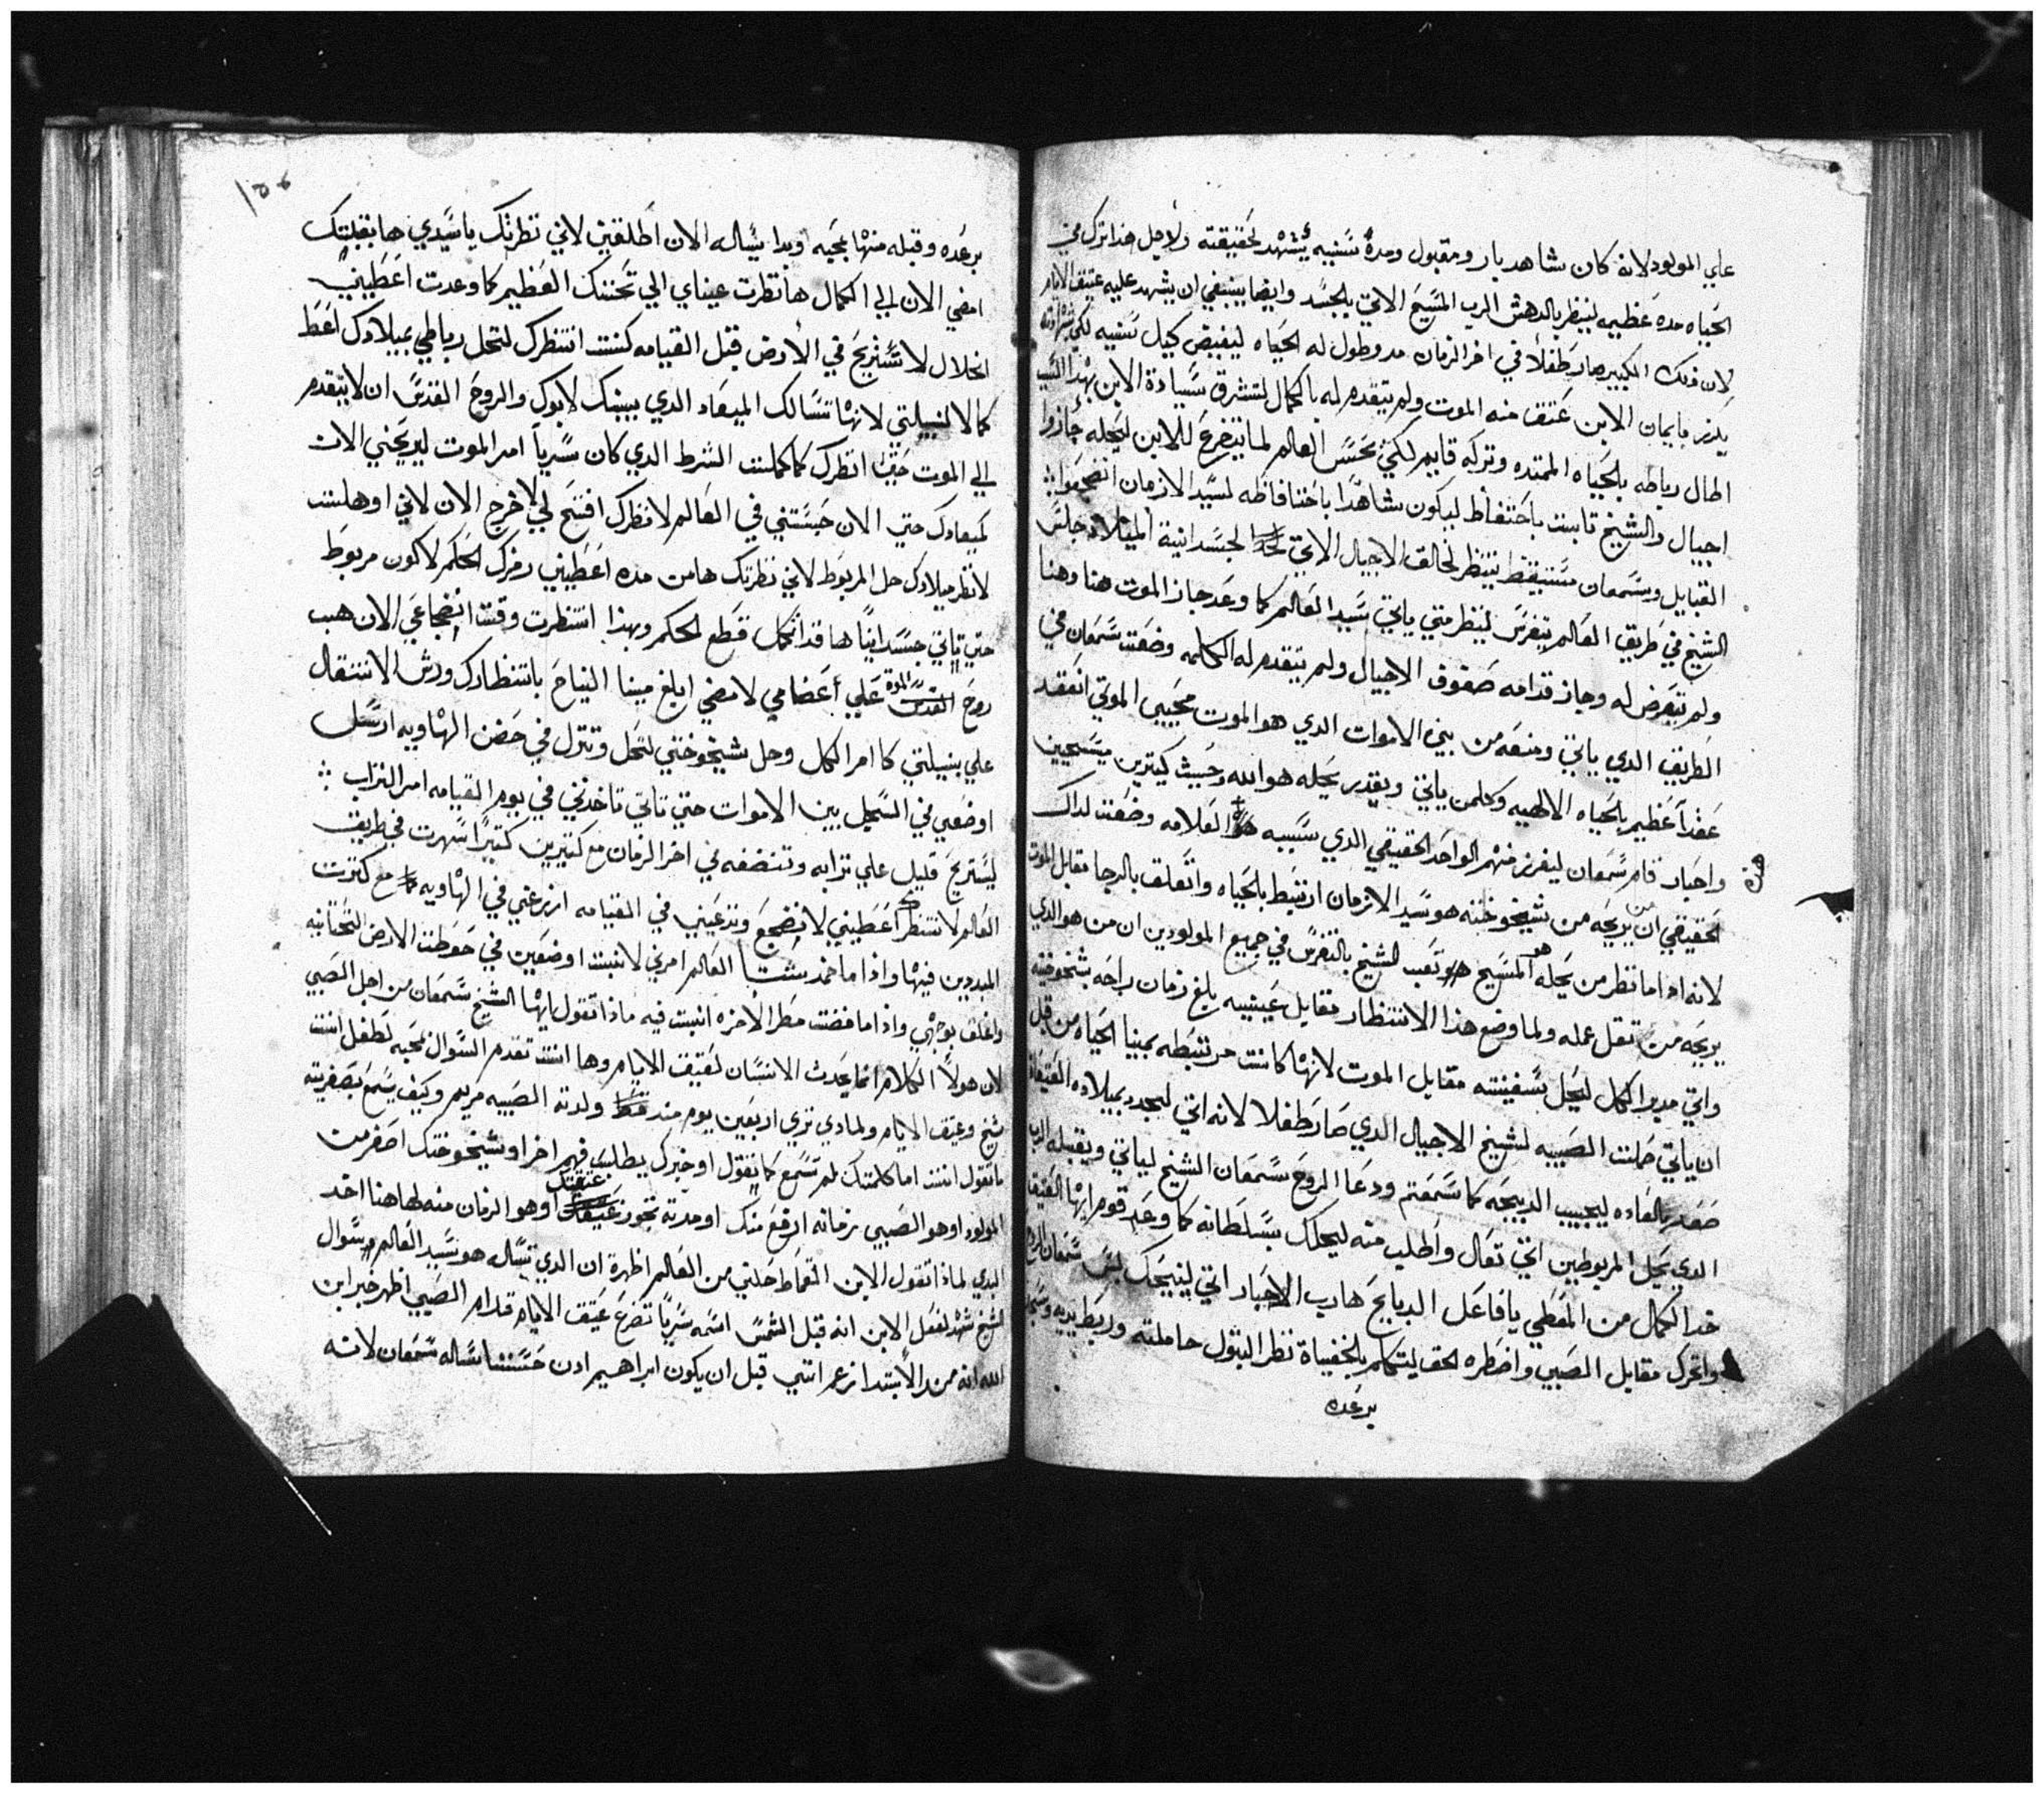 علي المولود لانه كان شاهد بار ومقبول ومدة سنينه يشهد لحقيقته ولاجل هذا ترك في
الحياه مده عظيمه لينظر بالدهش الرب المسيح الاتي بالجسد وايضا ينبغي ان يشهد عليه عتيق الايام
لان ذلك الكبير صار طفلاً في اخر الزمان مد وطول له الحياه ليفيض كيل سنيه لكي
يكرز بايمان الابن عتق منه الموت ولم يتقدم له بالكمال لتشرق سيادة الابن بهذا الشيخ
اطال رباطه بالحياه الممتده وتركه قايم لكي يحسن العالم لما يتضرع للابن ليحله جازوا
اجيال والشيخ ثابت باحتفاظ ليكون شاهدًا باحتفاظه لسيد الازمان انضجعوا
القبايل وسمعان مستيقظ ينتظر لخالق الاجيال الاتي لجسدانية الميلاد جلس
الشيخ في طريق العالم يتفرس لينظر متي ياتي سيد العالم كما وعد جاز الموت هنا وهنا
ولم يتعرض له وجاز قدامه صفوف الاجيال ولم يتقدم له الكلمه وضعت سمعان في
الطريق الذي ياتي ومنعه من بين الاموات الدي هو الموت محيي الموتي انعقد
عقداً عظيم بالحياه الالهيه وكلمن ياتي ويقدر يحله هو الله وحيث كيترين مسيحيين
واحبار قام سمعان ليفرز منهم الواحد الحقيقي الدي سببه العلامه وضعت لداك
هذه
الحقيقي ان يريحه من شيخوخته هو سيد الازمان ارتبط بالحياه واتعلق بالرجا مقابل الموت
لانه اذا ما نظر من يحله هو المسيح تعب الشيخ بالتفرس في جميع المولودين ان من هو الدي
يريحه من ثقل عمله ولما وضع هذا الانتظار مقابل عينيه بلغ زمان راحة شيخوخته
واتي مدبر الكل ليحل سفينته مقابل الموت لانها كانت مرتبطه بمينا الحياه من قبل
ان ياتي حملت الصبيه لشيخ الاجيال الدي صار طفلا لانه اتي ليجدد بميلاده
صعد بالعاده ليجيب الدبيحه كما سمعتم ودعا الروح سمعان الشيخ لياتي ويقبله
الدي يحل المربوطين اتي تعال واطلب منه ليحلك بسلطانه كما وعد قوم ايها العتيق
خد الكمال من المعطي يا فاعل الدبايح هادب الاحبار اتي لينيحك
واتحرك مقابل الصبي واضطره لحق ليتكلم بالخفياة نظر البتول حاملته
برعده
١٥٤
برعده وقبله منها بمحبه وبدا يساله الان اطلقني لاني نظرتك ياسيدي ها بقبلتك
امضي الان الي الكمال ها نظرت عيناي الي تحننك العظيم كما وعدت اعطيني
انحلال لاستريح في الأرض قبل القيامه كنت انتظرك لتحل رباطي بميلادك اعط
كمالا لنبيلتي لانها تسالك الميعاد الدي بينك لابوك والروح القدس ان لا يتقدم
الي الموت حتى انظرك كما كملت الشرط الدي كان سرياً امر الموت ليريحني الان
لميعادك حتي الان حبستني في العالم لانظرك افتح لي لاخرج الان لاني اوهلت
لانظر ميلادك حل المربوط لاني نظرتك ها من مده اعطيني رمزك الحكم لاكون مربوط
حتي تاتي جسدانياً ها قد اكمل قطع الحكم وبهذا انتظرت وقت انضجاعي الان هب
روح الموة علي اعضامي لامضي ابلغ مينا النياح بانتظارك ورش الانتقال
علي بنيلتي كما امر الكل وحل شيخوختي لتحل وتنزل في حضن الهاويه ارسل
اوضعي في السجل بين الاموات حتي تاتي تاخدني في يوم القيامه امر التراب
ليستريح قليل علي ترابه وتنضفه في اخر الزمان مع كتيرين كتيرًا سهرت في طريق
العالم لانتظرك اعطيني لانضجع وتدعيني في القيامه ازرعني في الهاويه مع كنزت
المبددين فيها واذا ما خمد شتا العالم امرني لانبت اوضعين في حوطت الارض التحتانيه
واغلق بوجهي واذا ما فضت مطر الأخره انبت فيه ماذا تقول يايها الشيخ سمعان من اجل الصبي
لان هولاً الكلام انما يحدث الانسان لعتيق الايام وها انت تقدم السوال بمحبه لطفل انت
شيخ وعتيق الايام ولمادي تري اربعين يوم مند ولدته الصبيه مريم وكيف يسمع بصغريته
ما تقول انت اما كلمتك لم تسمع كما تقول او خبرك يطلب فهم اخر او شيخوختك اصغر من
المولود او هو الصبي زمانه ارفع منك او مدته تجوز عتقتك او هو الزمان منه لها هنا اخد
البدي لماذا تقول لابن القماط حلني من العالم اظهرة ان الدي تسال هو سيد العالم وسوال
الشيخ شهد لفعل الابن انه قبل الشمس اسمه سريًا تضرع عتيق الايام قدام الصبي اظهر خبر ابن
الله انه من الأبتدا زعم انني قبل ان يكون ابراهيم ادن حسنا ساله سمعان لانه